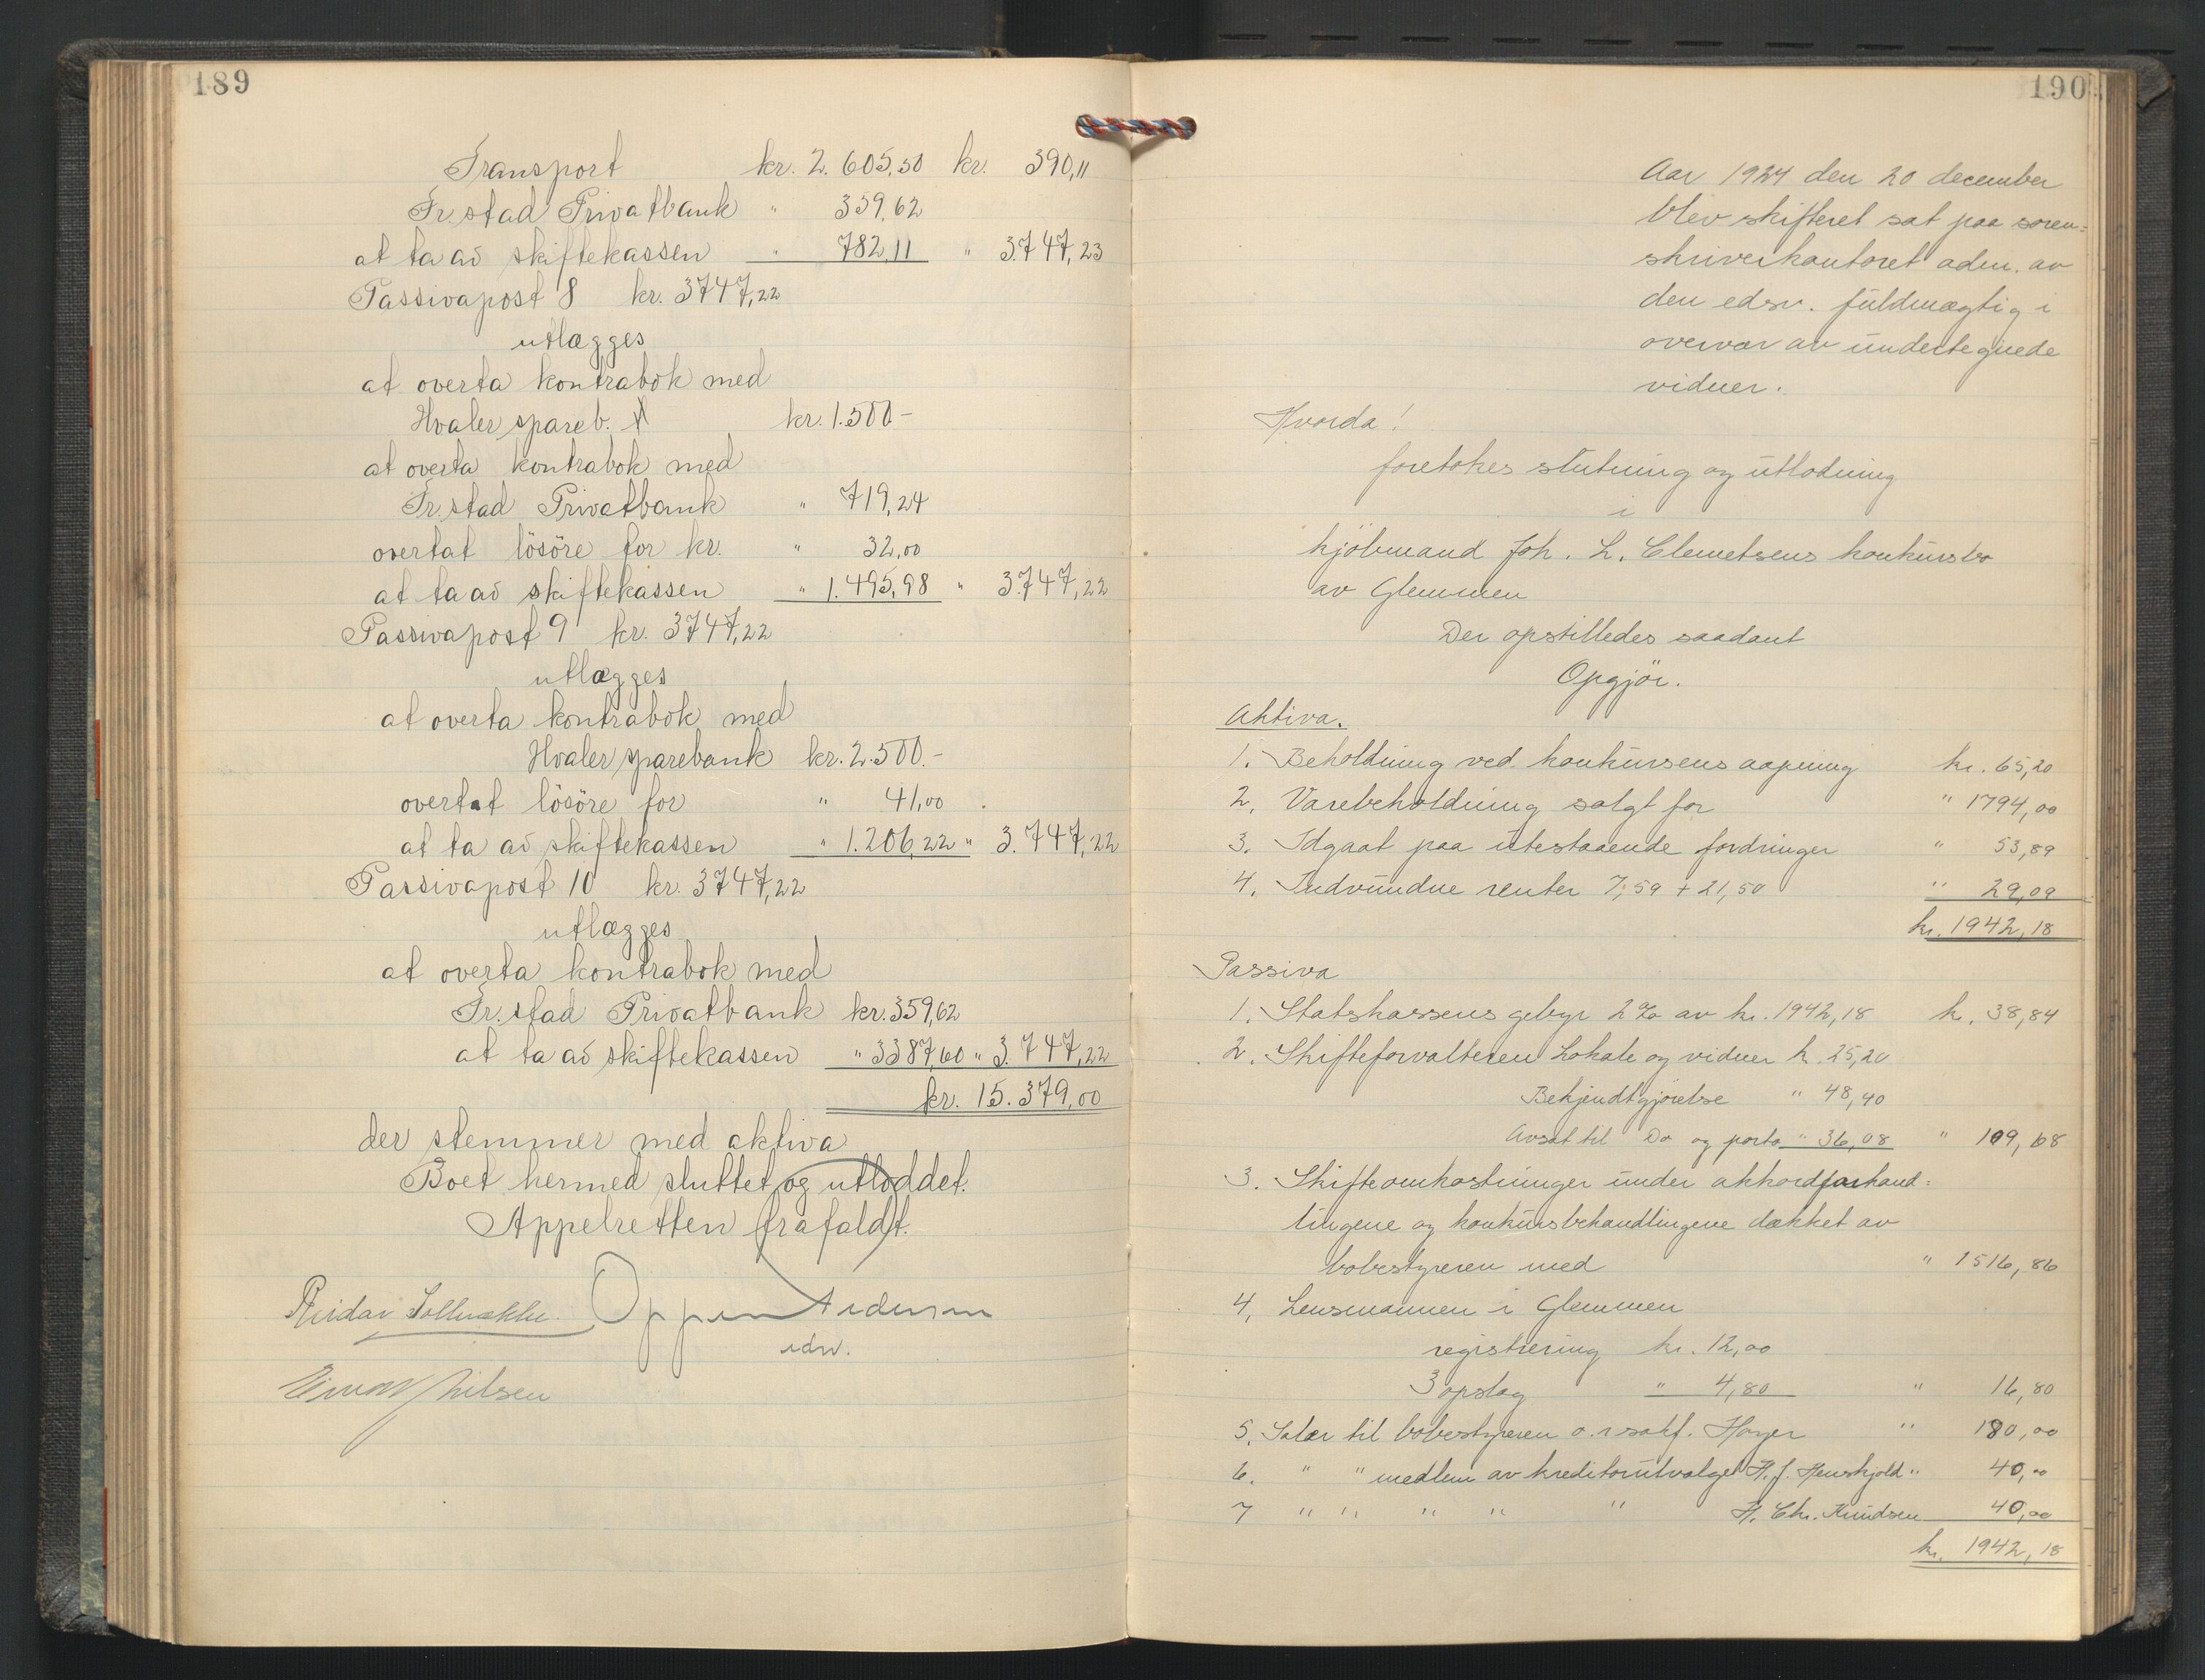 189
Transport kr. 2.605,50 kr. 390,11
Fr.stad Privatbank " 359,62
at ta av skiftekassen " 782,11 " 3.747,23
Passivapost 8 kr. 3747,22
utlægges
at overta kontrabok med
Hvaler spareb. kr. 1.500.-
at overta kontrabok med
Fr.stad Privatbank " 719,24
overtat lösöre for kr. " 32,00
at ta av skiftekassen " 1.495,98 " 3.747,22
Passivapost 9 kr. 3747,22
utlægges
at overta kontrabok med
Hvaler sparebank kr. 2.500.-
overtat lösöre for " 41,00
at ta av skiftekassen " 1.206,22 " 3.747,22
Passivapost 10 kr. 3747,22
utlægges
at overta kontrabok med
Fr.stad Privatbank kr. 359,62
at ta av skiftekassen " 3387,60 " 3.747,22
kr. 15.379,00
der stemmer med aktiva
Boet hermed sluttet og utloddet.
Appelretten frafaldt.
Reidar
edsv.
Nilsen
190
Aar 1924 den 20 december
blev skifteret sat paa soren=
skriverkontoret adm. av
den edsv. fuldmægtig i
overvær av undertegnede
vidner.
Hvorda!
foretokes slutning og utlodning
i
kjöbmand Joh. L. Clemetsens konkursbo
av Glemmen
Der opstilledes saadant
Opgjör.
Aktiva.
1. Beholdning ved konkursens aapning kr. 65,20
2. Varebeholdning solgt for " 1794,00
3. Idgaat paa utestaaende fordringer " 53,89
4. Indvundne renter 7,59 + 21,50 " 29,09
kr. 1942,18
Passiva
1. Statskassens gebyr 2% av kr. 1942,18 kr. 38,84
2. Skifteforvalteren Lokale og vidner kr. 25,20
Bekjendtgjörelse " 48,40
Avsat til Do og porto " 36,08 " 109,68
3. Skifteomkostninger under akkordforhand=
lingene og konkursbehandlingene dækket av
bobestyreren med " 1516,86
4. Lensmannen i Glemmen
registrering kr. 12,00
3 opslag " 4,80 " 16,80
5. Salær til bobestyreren o.r.sakf. Høyer " 180,00
6. " " medlem av kreditorutvalget H. J. Henskjold " 40,00
7 " " " " " H. Chr. Knudsen 40,00
kr. 1942,18